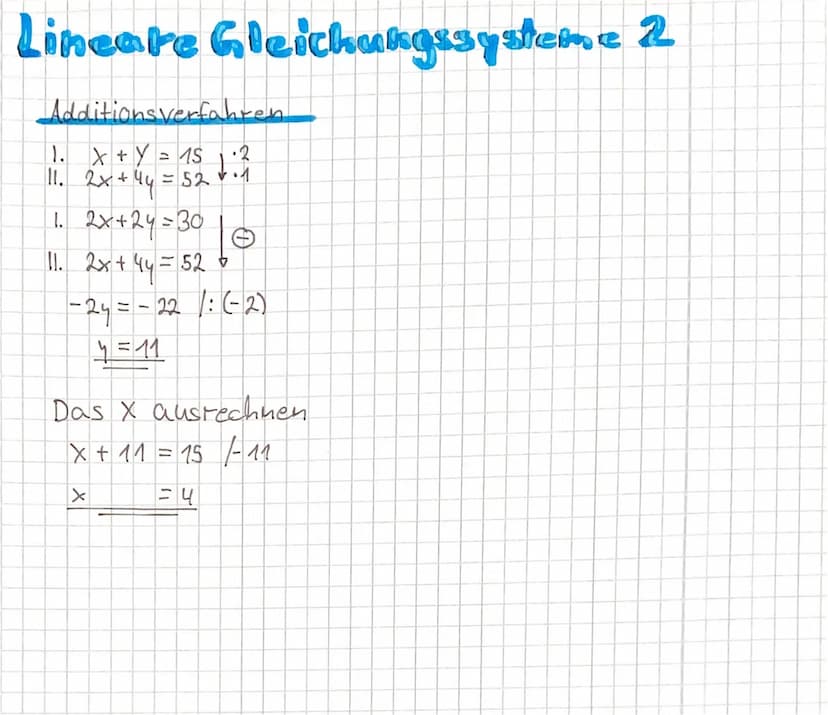 Lineare Gleichungssysteme 2
Additionsverfahren
I. x + y = 15 | ·2
II. 2x + 4y = 52 ↓ ·1
I. 2x + 2y = 30
⊖
II. 2x + 4y = 52
-2y = -22 /: (-2)
y = 11
Das x ausrechnen
x + 11 = 15 /-11
x = 4